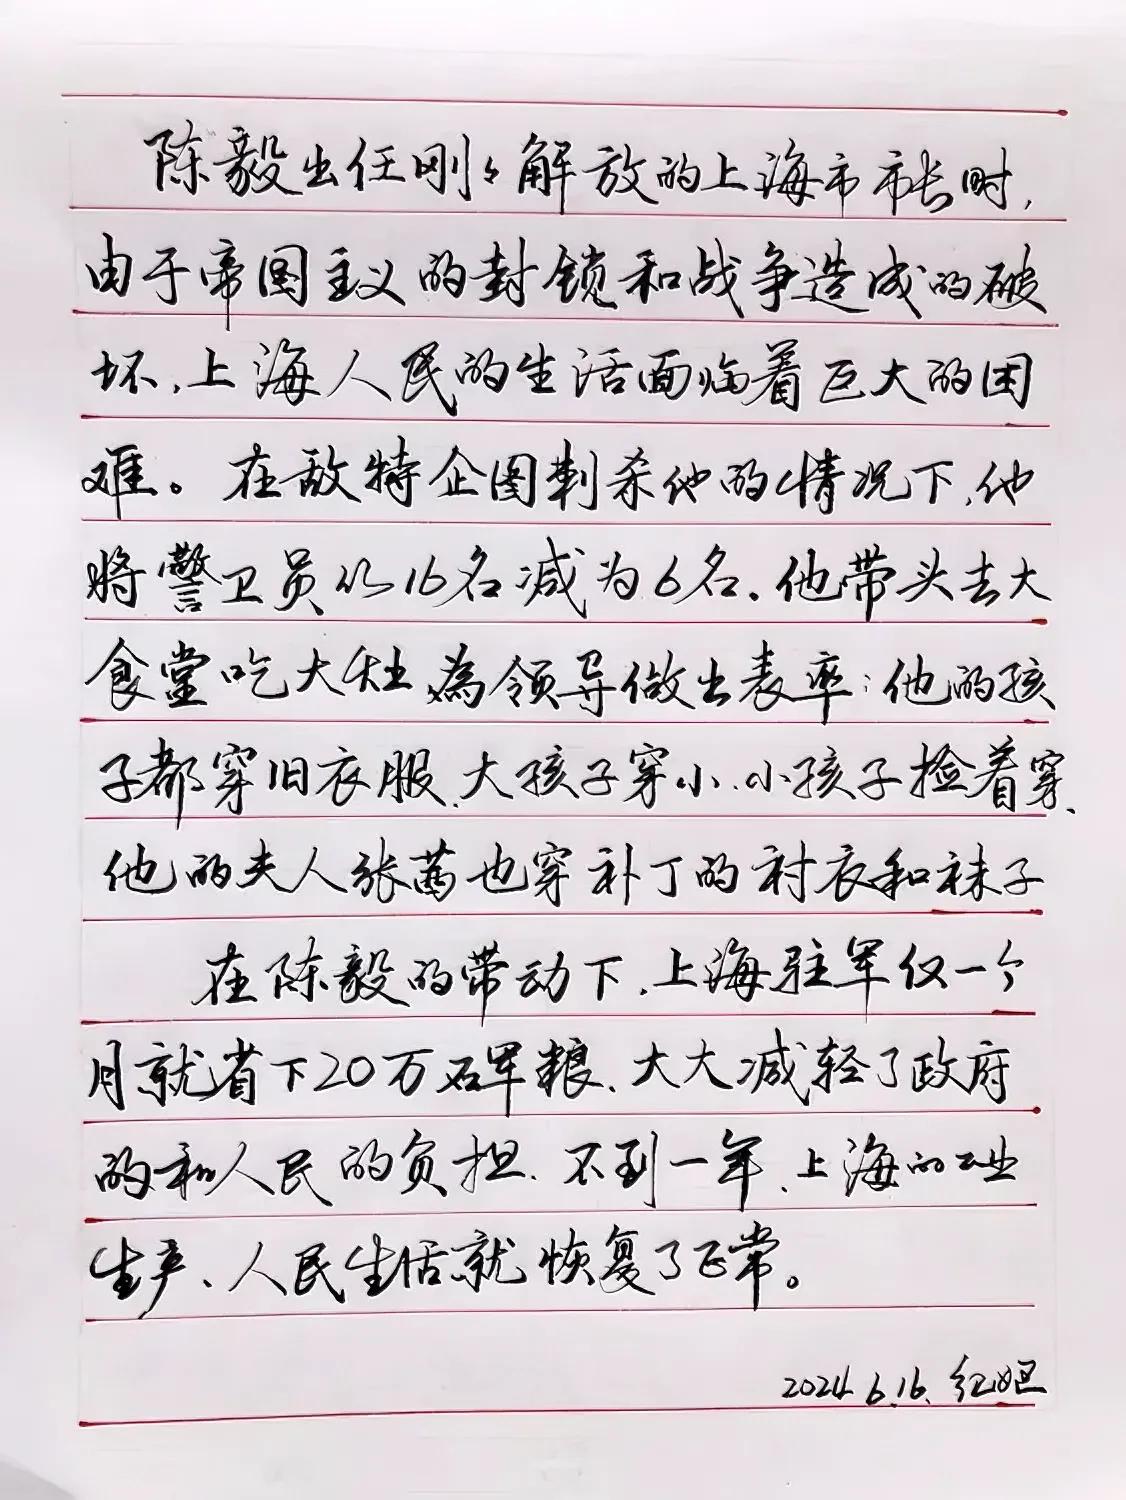 陈毅出任刚々解放的上海市市长时,
由于帝国主义的封锁和战争造成的破
坏,上海人民的生活面临着巨大的困
难。在敌特企图刺杀他的情况下,他
将警卫员从16名减为6名.他带头去大
食堂吃大灶,為领导做出表率;他的孩
子都穿旧衣服.大孩子穿小.小孩子捡着穿、
他的夫人张茜也穿补丁的衬衣和袜子
在陈毅的带动下.上海驻军仅一个
月就省下20万石军粮、大大减轻了政府
的和人民的负担.不到一年、上海的工业
生产、人民生活就恢复了正常。
2024.6.16.红